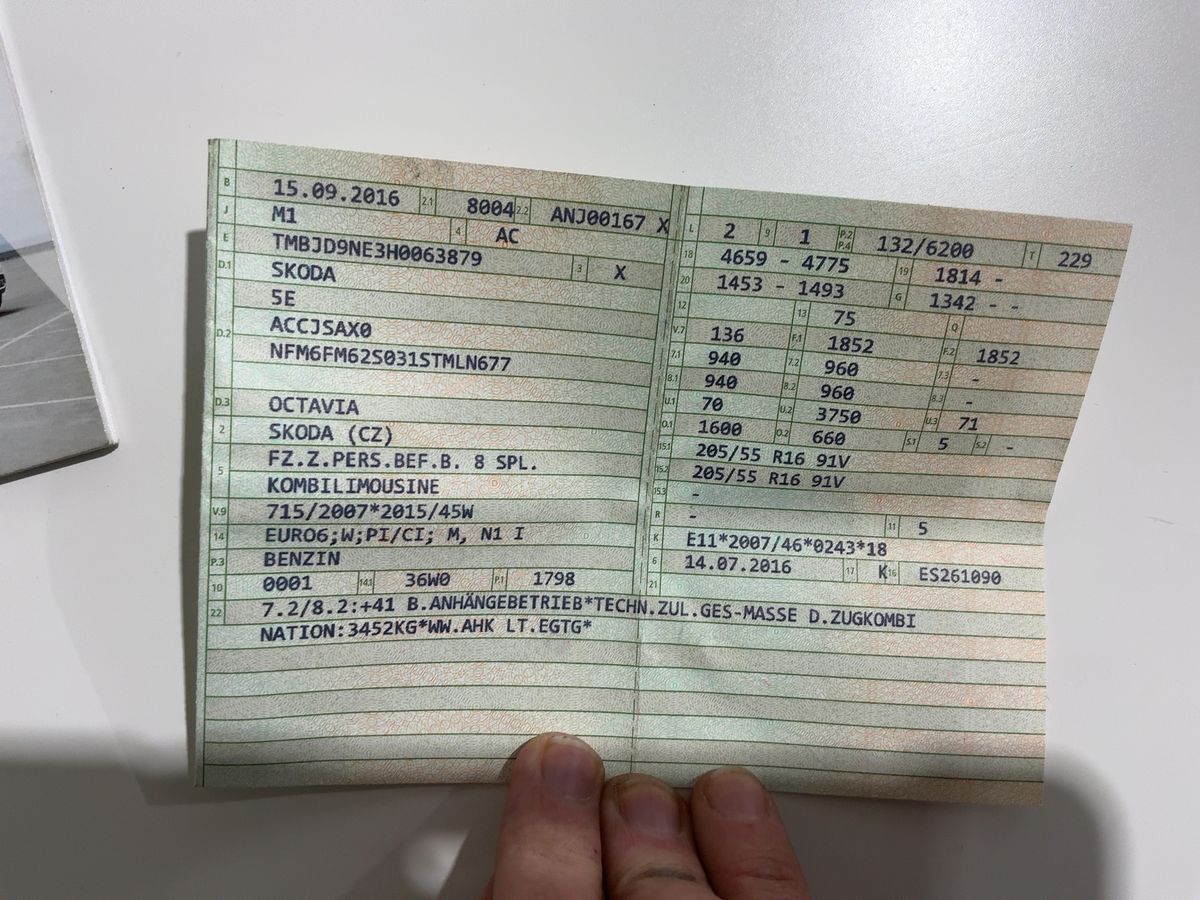 B 15.09.2016 2.1 8004 2.2 ANJ00167 X
J M1 4 AC
E TMBJD9NE3H0063879 3 X
D.1 SKODA
5E
D.2 ACCJSAX0
NFM6FM62S031STMLN677
D.3 OCTAVIA
2 SKODA (CZ)
5 FZ.Z.PERS.BEF.B. 8 SPL.
KOMBILIMOUSINE
V.9 715/2007*2015/45W
14 EURO6;W;PI/CI; M, N1 I
P.3 BENZIN
10 0001 14.1 36W0 P.1 1798
L 2 9 1 P.2 P.4 132/6200 T 229
18 4659 - 4775 19 1814 -
20 1453 - 1493 G 1342 - -
12 13 75 Q
V.7 136 F.1 1852 F.2 1852
7.1 940 7.2 960 7.3 -
8.1 940 8.2 960 8.3 -
U.1 70 U.2 3750 U.3 71
O.1 1600 O.2 660 S.1 5 S.2 -
15.1 205/55 R16 91V
15.2 205/55 R16 91V
15.3 -
R - 11 5
K E11*2007/46*0243*18
6 14.07.2016 17 K 16 ES261090
21
22 7.2/8.2:+41 B.ANHÄNGEBETRIEB*TECHN.ZUL.GES-MASSE D.ZUGKOMBI
NATION:3452KG*WW.AHK LT.EGTG*